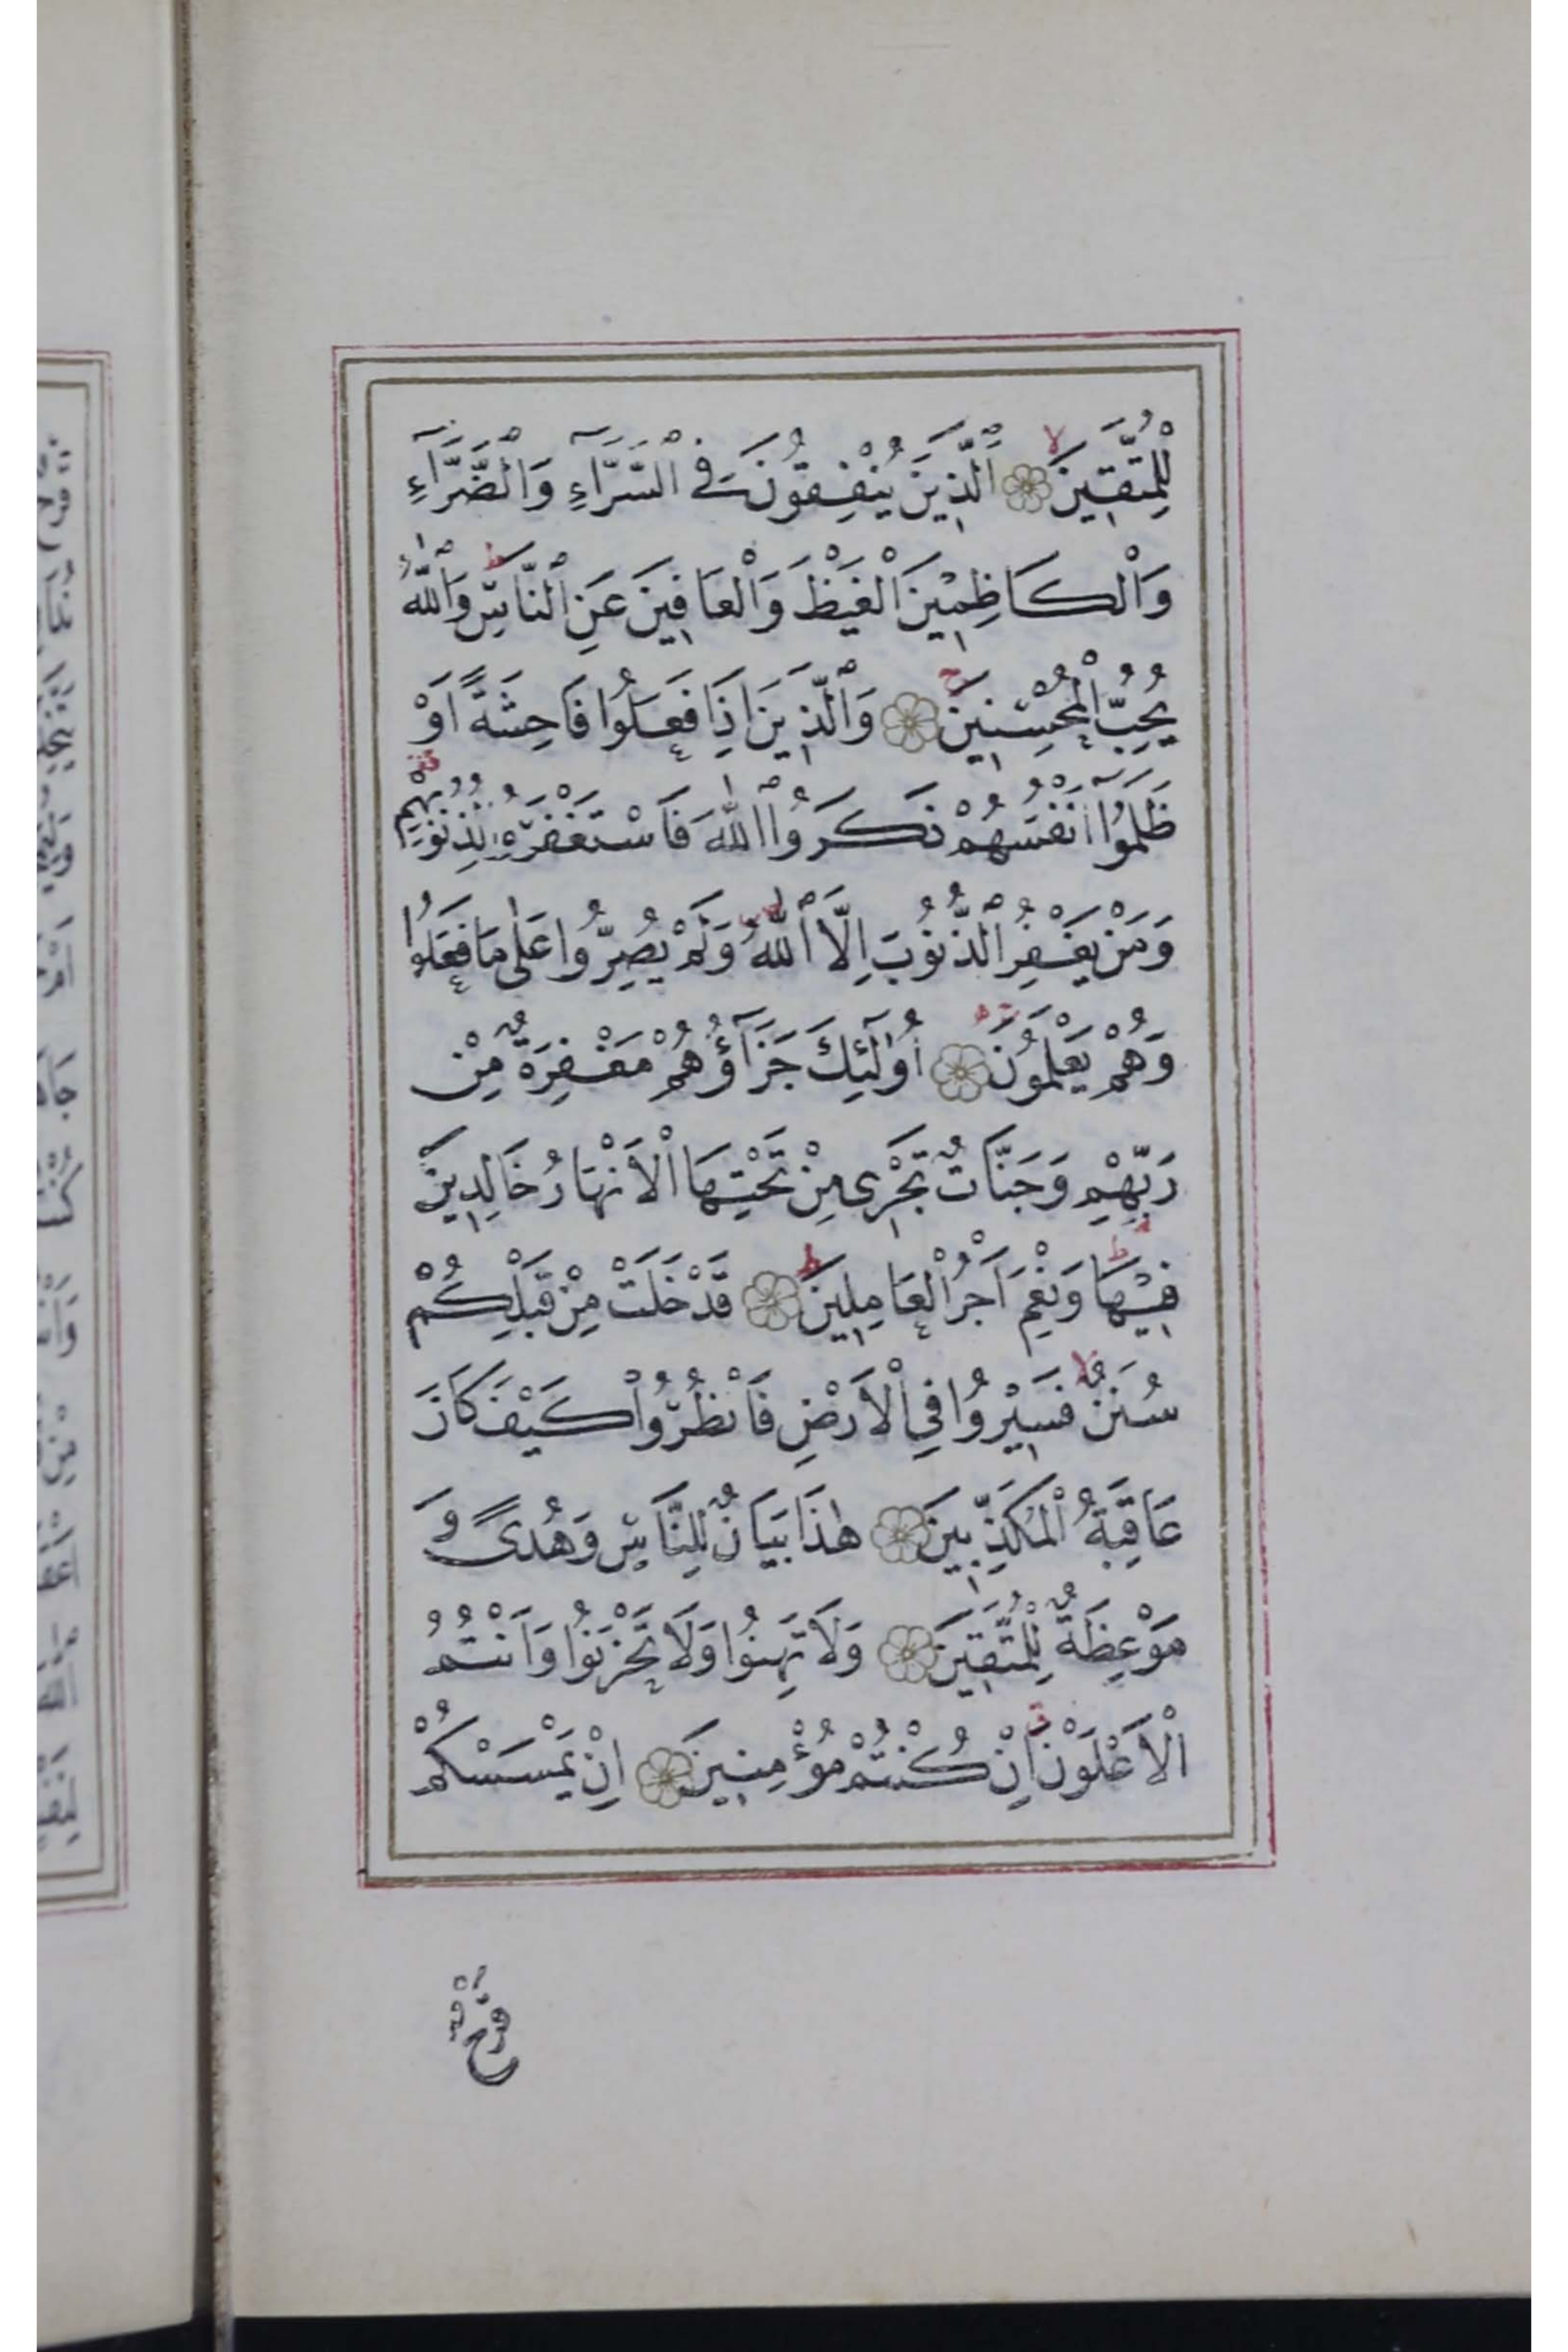 لِلْمُتَّقِينَ ۙ اَلَّذِينَ يُنْفِقُونَ فِي السَّرَّاءِ وَالضَّرَّاءِ
وَالْكَاظِمِينَ الْغَيْظَ وَالْعَافِينَ عَنِ النَّاسِ ۗ وَاللّٰهُ
يُحِبُّ الْمُحْسِنِينَ ۚ وَالَّذِينَ اِذَا فَعَلُوا فَاحِشَةً اَوْ
ظَلَمُوا اَنْفُسَهُمْ ذَكَرُوا اللّٰهَ فَاسْتَغْفَرُوا لِذُنُوبِهِمْ
وَمَنْ يَغْفِرُ الذُّنُوبَ اِلَّا اللّٰهُ وَلَمْ يُصِرُّوا عَلٰى مَا فَعَلُوا
وَهُمْ يَعْلَمُونَ اُولٰئِكَ جَزَاؤُهُمْ مَغْفِرَةٌ مِنْ
رَبِّهِمْ وَجَنَّاتٌ تَجْرِي مِنْ تَحْتِهَا الْاَنْهَارُ خَالِدِينَ
فِيهَا وَنِعْمَ اَجْرُ الْعَامِلِينَ ط قَدْ خَلَتْ مِنْ قَبْلِكُمْ
سُنَنٌ ۙ فَسِيرُوا فِي الْاَرْضِ فَانْظُرُوا كَيْفَ كَانَ
عَاقِبَةُ الْمُكَذِّبِينَ هٰذَا بَيَانٌ لِلنَّاسِ وَهُدًى وَ
مَوْعِظَةٌ لِلْمُتَّقِينَ وَلَا تَهِنُوا وَلَا تَحْزَنُوا وَاَنْتُمُ
الْاَعْلَوْنَ اِنْ كُنْتُمْ مُؤْمِنِينَ اِنْ يَمْسَسْكُمْ
قَرْحٌ